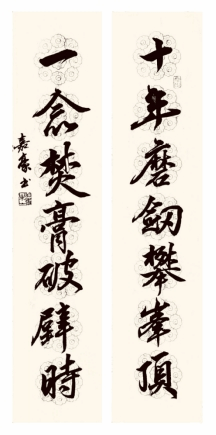 十年磨劔攀峯頂
一念焚膏破壁時
嘉泰书